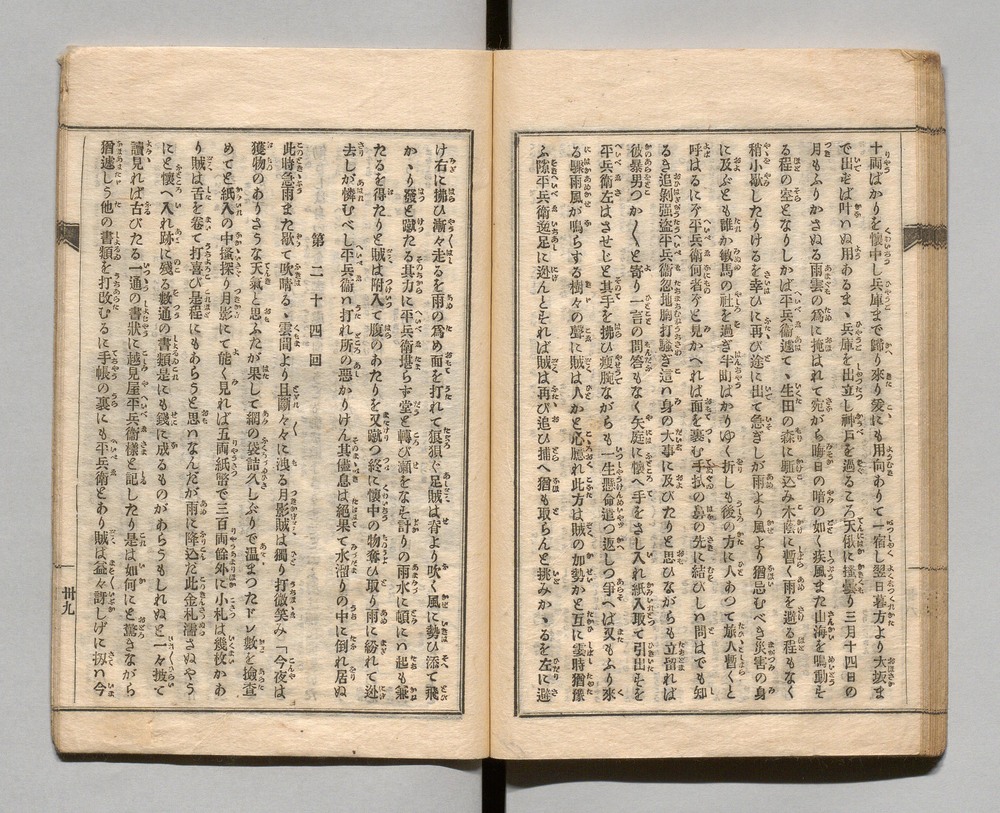 十両ばかりを懐中し兵庫まで歸り來り爰にも用向ありて一宿し翌日暮方より大坂ま
で出をば叶ハぬ用あるまゝ兵庫を出立し神戸を過るころ天俄に掻曇り三月十四日の
月もふりかさぬる雨雲の爲に掩はれて宛がら晦日の暗の如く疾風また山海を鳴動せ
る程の空となりしかば平兵衞遽て、生田の森に駈込み木蔭に暫く雨を避る程もなく
稍小歇したりけるを幸ひに再び途に出て急ぎしが雨より風より猶忌むべき災害の身
に及ぶとも誰か敏馬の社を過ぎ半町ばかりゆく折しも後の方に人あつて旅人暫くと
呼はるに平兵衞何者ぞと見かへれば面を裹む手拭の鼻の先に結びしハ問はでも知
るき追剥強盗平兵衞忽地胸打騷ぎ這ハ身の大事に及びたりと思ひながらも立留れば
彼暴男つか〱と寄り一言の問答もなく矢庭に懐へ手をさし入れ紙入取て引出をを
平兵衞左はさせじと其手を拂ひ痩腕ながらも一生懸命遣つ返しつ爭へば又もふり來
る驟雨風が鳴らする樹々の聲に賊は人かと心臆れ此方は賊の加勢かと互に霎時猶豫
ふ隙平兵衞逸足に迯んとそれば賊は再び追ひ捕へ猶も取らんと挑みかゝるを左に避
け右に拂ひ漸々走るを雨の爲め面を打れて狼狽ぐ足賊は脊より吹く風に勢ひ添て飛
かゝり發と蹴たる其力に平兵衞堪らず堂と轉び瀬をなす計りの雨水に頓にハ起も兼
たるを得たりと賊は附入て腹のあたりを又蹴つ終に懐中の物奪ひ取り雨に紛れて迯
去しが憐むべし平兵衞ハ打れ所の惡かりけん其儘息は絶果て水溜りの中に倒れ居ぬ
第二十四回
此時急雨また歇て吹晴るゝ雲間より且斷々々に洩る月影賊は獨り打微笑み「今夜は
獲物のありさうな天氣と思ふたが果して網の袋詰久しぶりで温まつたドレ數を撿査
めてと紙入の中搔探り月影にて能く見れば五兩紙幣で三百兩餘外に小札は幾枚かあ
り賊は舌を卷て打喜び是程にもあらうと思ハなんだが雨に降込だ此金札濡さぬやう
にと懐へ入れ跡に殘る數通の書類是にも錢に成るものがあらうもしれぬと一々披て
讀見れば古びたる一通の書狀に越見屋平兵衞樣と記したり是は如何にと驚きながら
猶遽しう他の書類を打改むるに手帳の裏にも平兵衞とあり賊は益々訝しげに扨ハ今
卅九